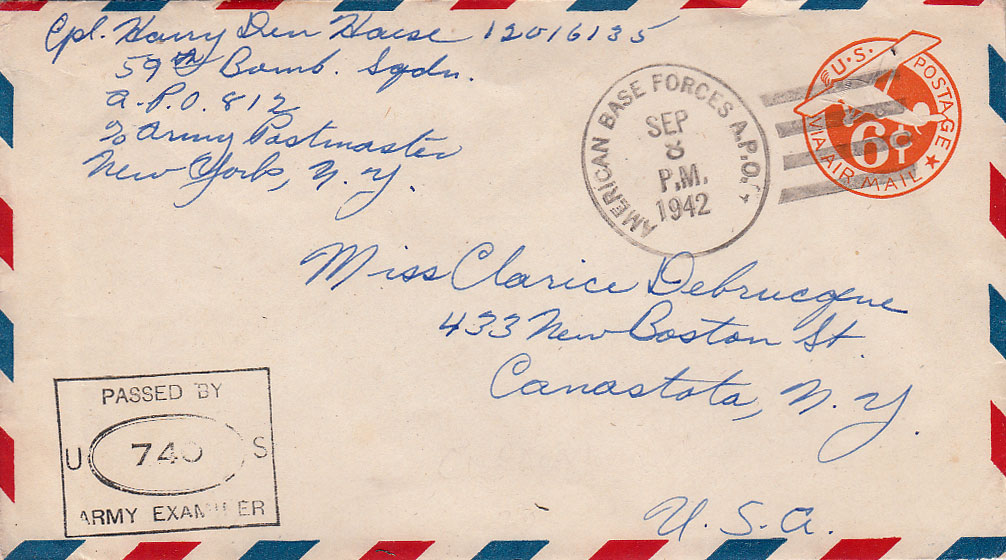 Cpl. Harry Den Haese 12016135
59th Bomb. Sqdn.
A.P.O. 812
c/o Army Postmaster
New York, N.Y.
AMERICAN BASE FORCES A.P.O.
SEP
8
P.M.
1942
U.S. POSTAGE
6¢
VIA AIR MAIL
Miss Clarice Debrucque
433 New Boston St.
Canastota, N.Y.
U.S.A.
PASSED BY
U 740 S
ARMY EXAMINER